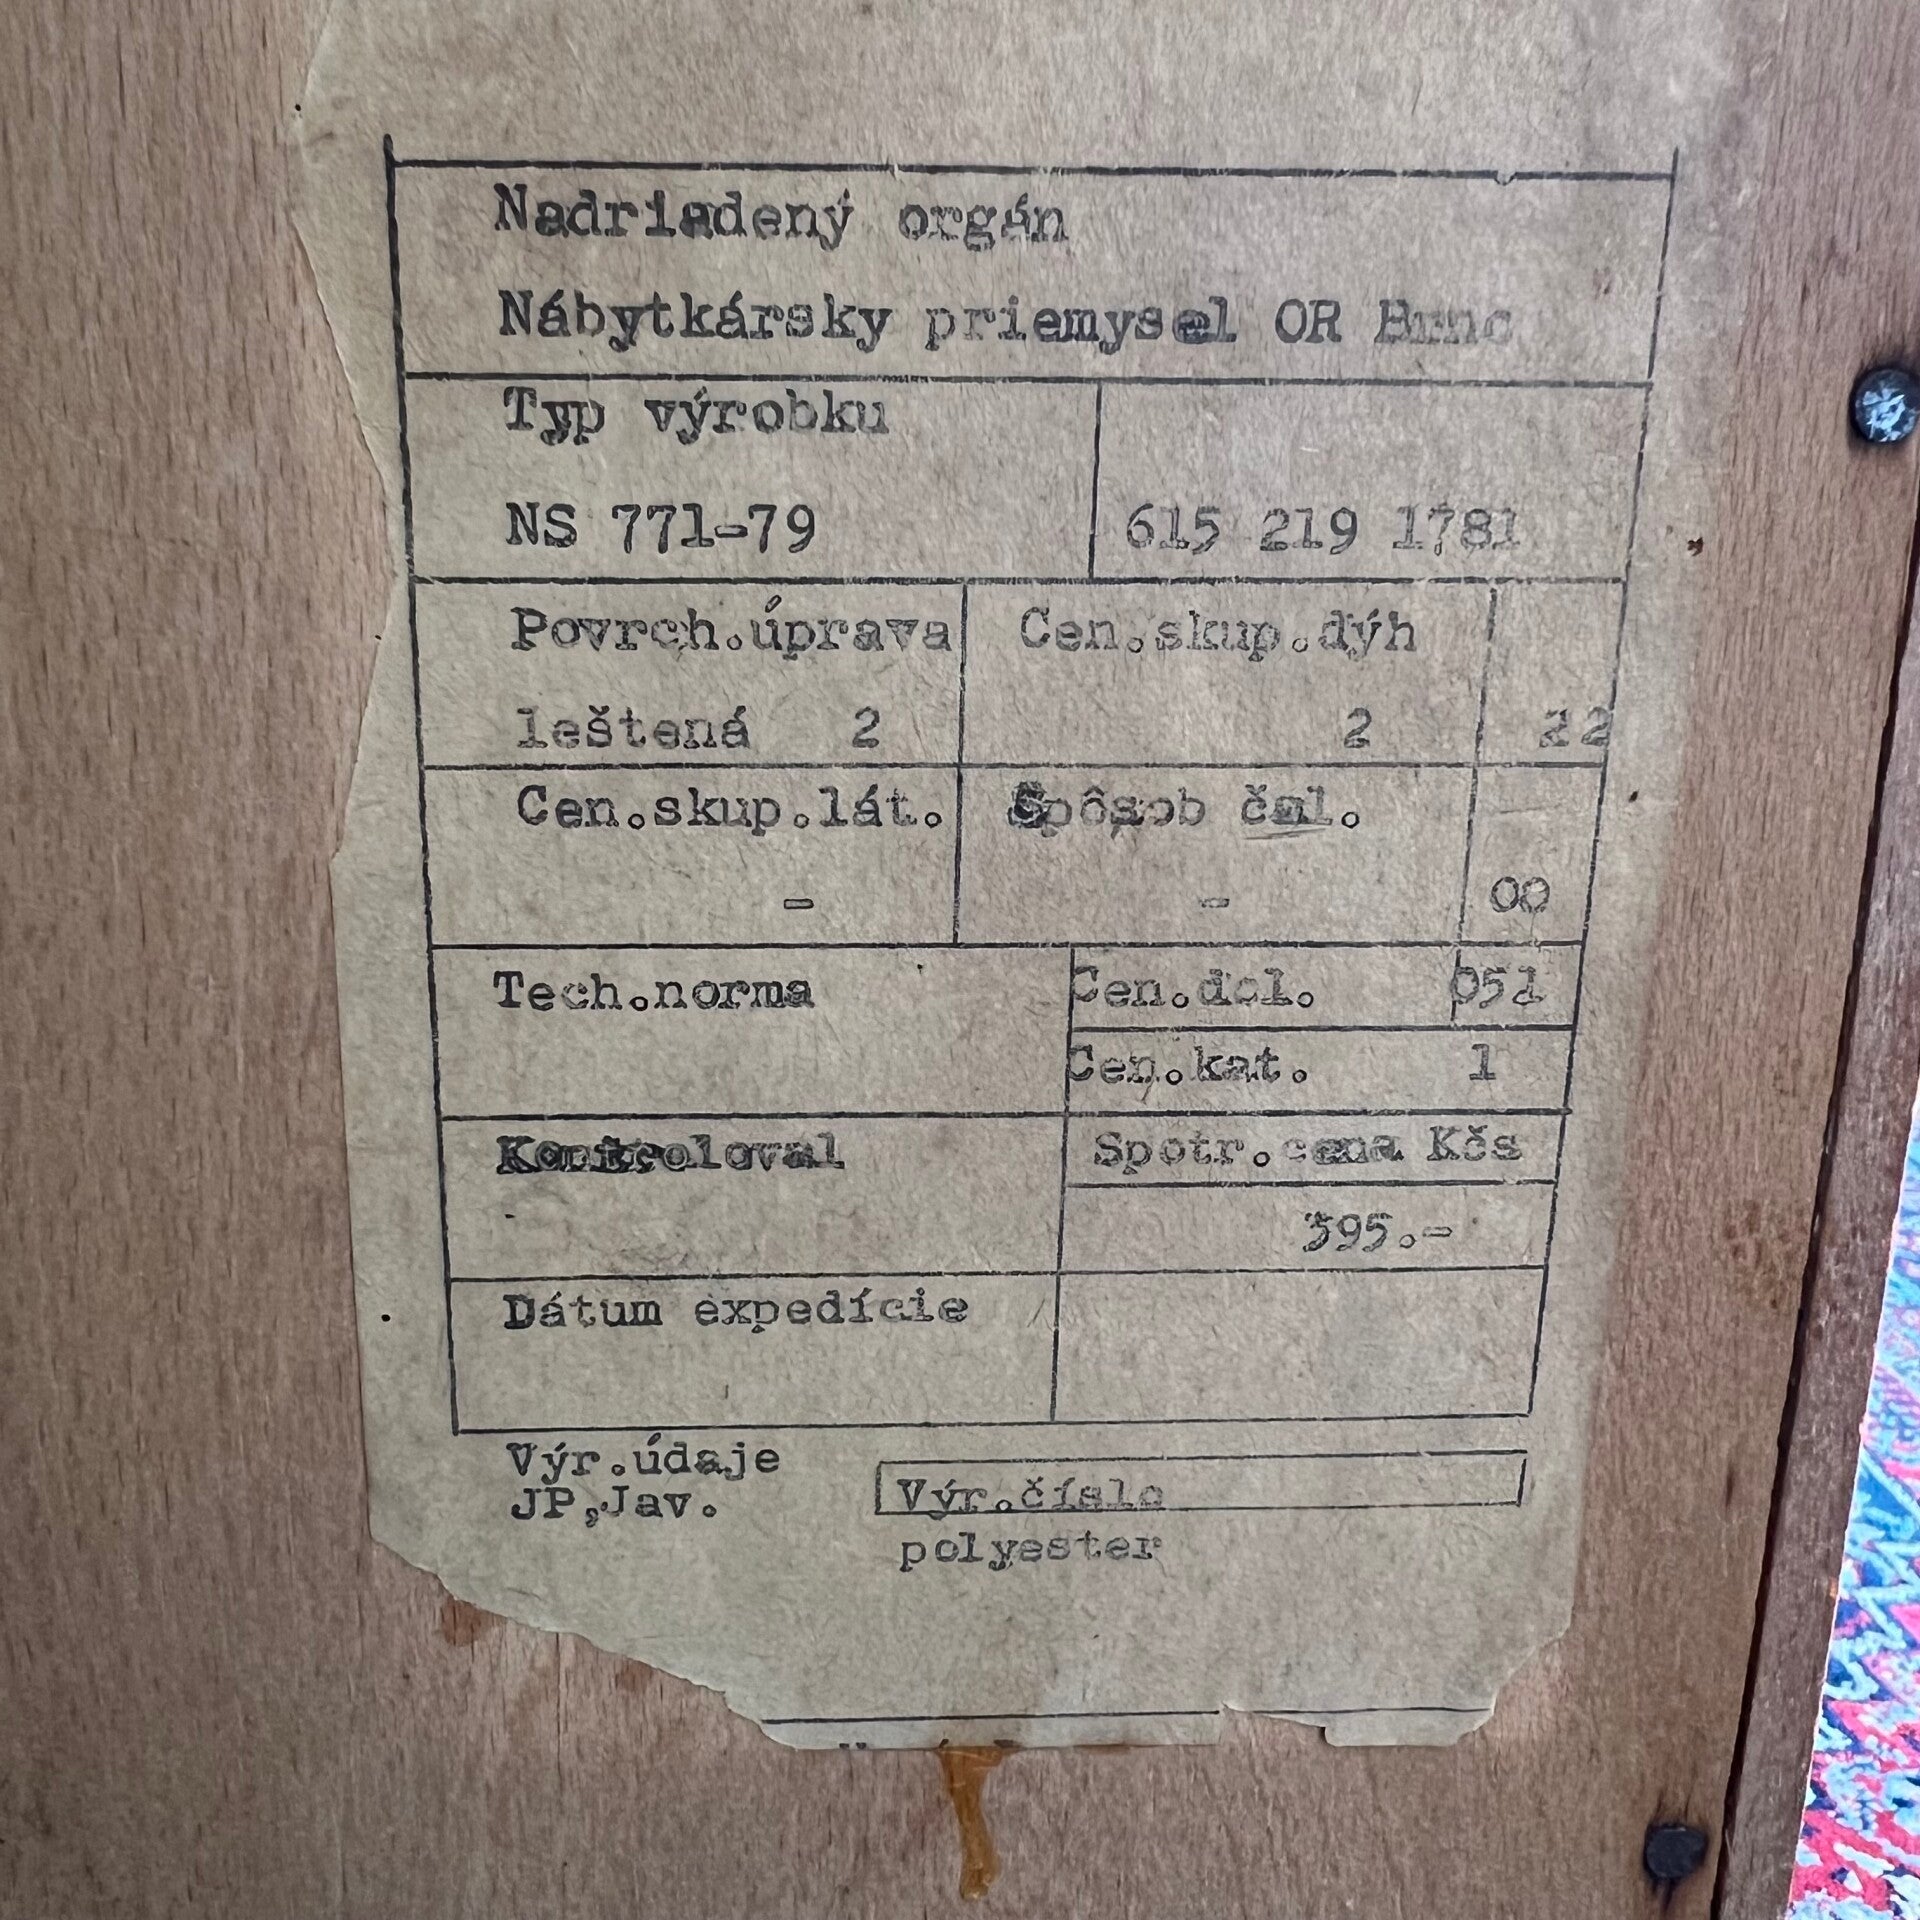 Nadriadený orgán
Nábytkársky priemysel OR Brno
Typ výrobku
NS 771-79 615 219 1781
Povrch.úprava Cen.skup.dýh
leštená 2 2 22
Cen.skup.lát. Spôsob čal.
- - 00
Tech.norma Cen.dol. 051
Cen.kat. 1
Kontroloval Spotr.cena Kčs
395.-
Dátum expedície
Výr.údaje
JP,Jav. Výr.číslo
polyester